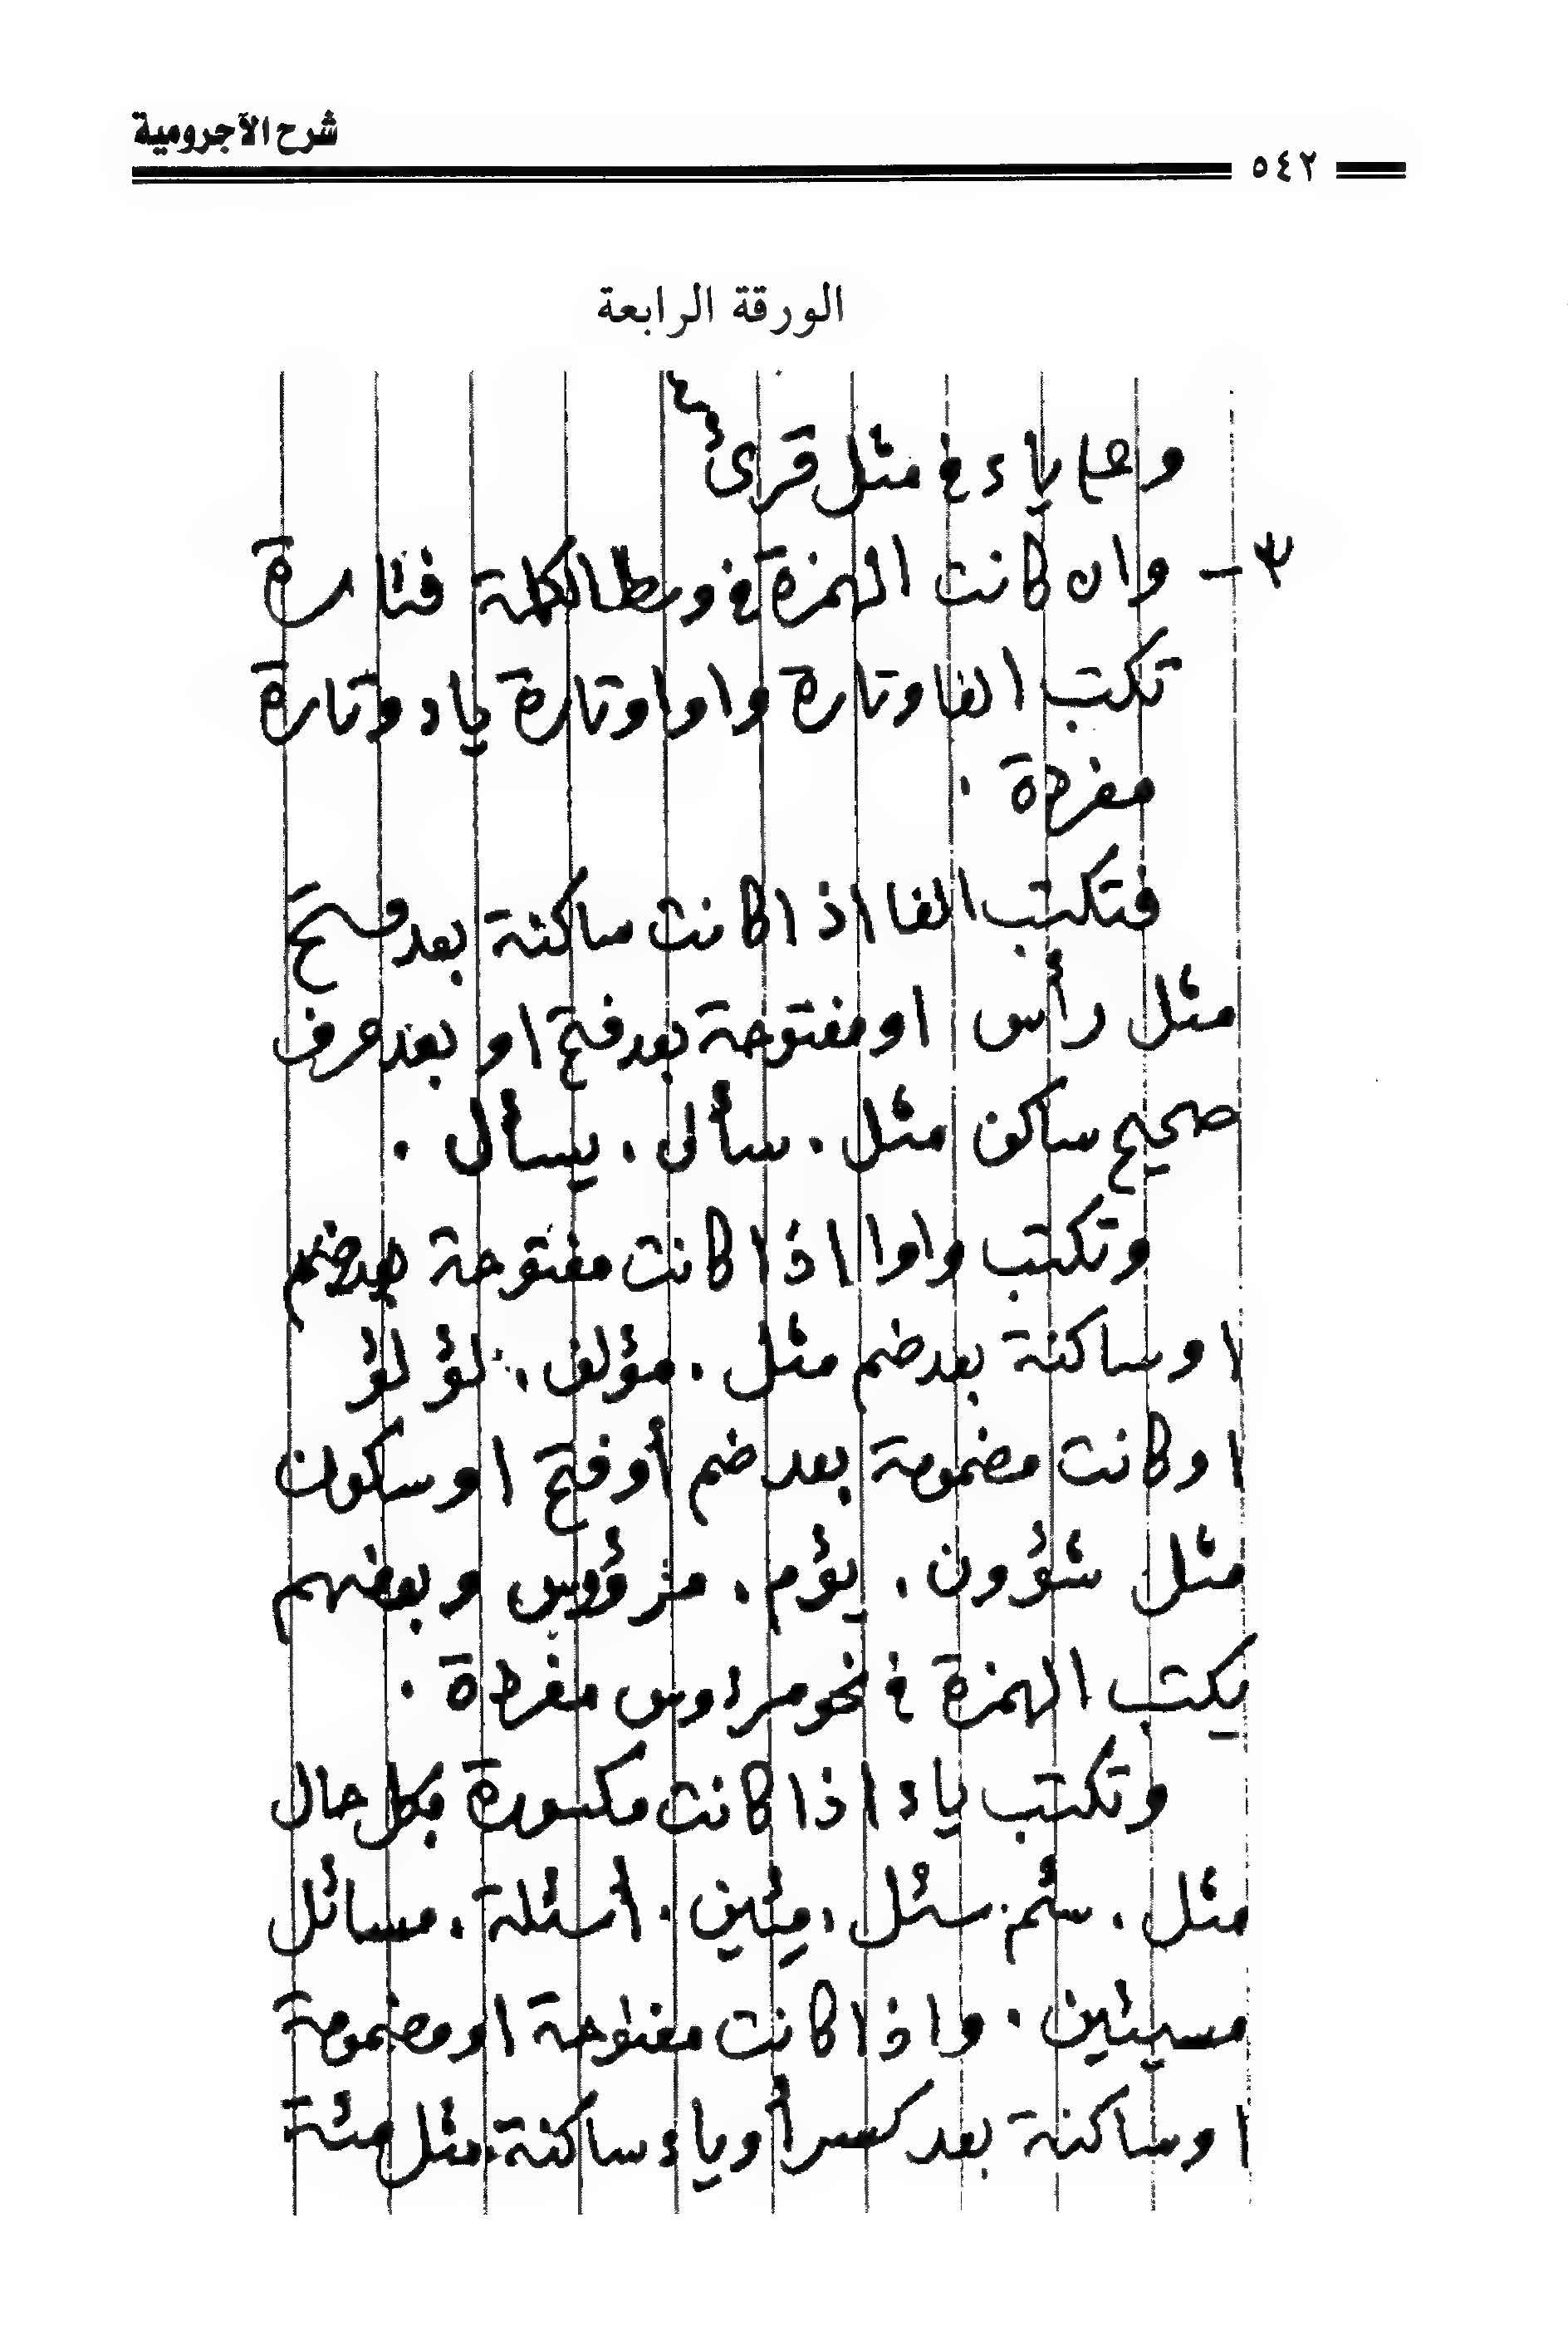 شرح الآجرومية
٥٤٢
الورقة الرابعة
وعلى ياء في مثل قرئ
٣ - وان كانت الهمزة في وسط الكلمة فتارة
تكتب الفا وتارة واوا وتارة ياء وتارة
مفردة .
فتكتب الفا اذا كانت ساكنة بعد فتح
مثل رأس او مفتوحة بعد فتح او بعد حرف
صحيح ساكن مثل . سأل . يسأل .
وتكتب واوا اذا كانت مفتوحة بعد ضم
او ساكنة بعد ضم مثل . مؤلف . لؤلؤ
او كانت مضمومة بعد ضم أو فتح او سكون
مثل شؤون . يؤم . مرؤوس وبعضهم
يكتب الهمزة في نحو مرءوس مفردة .
وتكتب ياء اذا كانت مكسورة بكل حال
مثل . سئم . سئل . مئين . أسئلة . مسائل
مسيئين . واذا كانت مفتوحة او مضمومة
او ساكنة بعد كسر أو ياء ساكنة مثل مئة